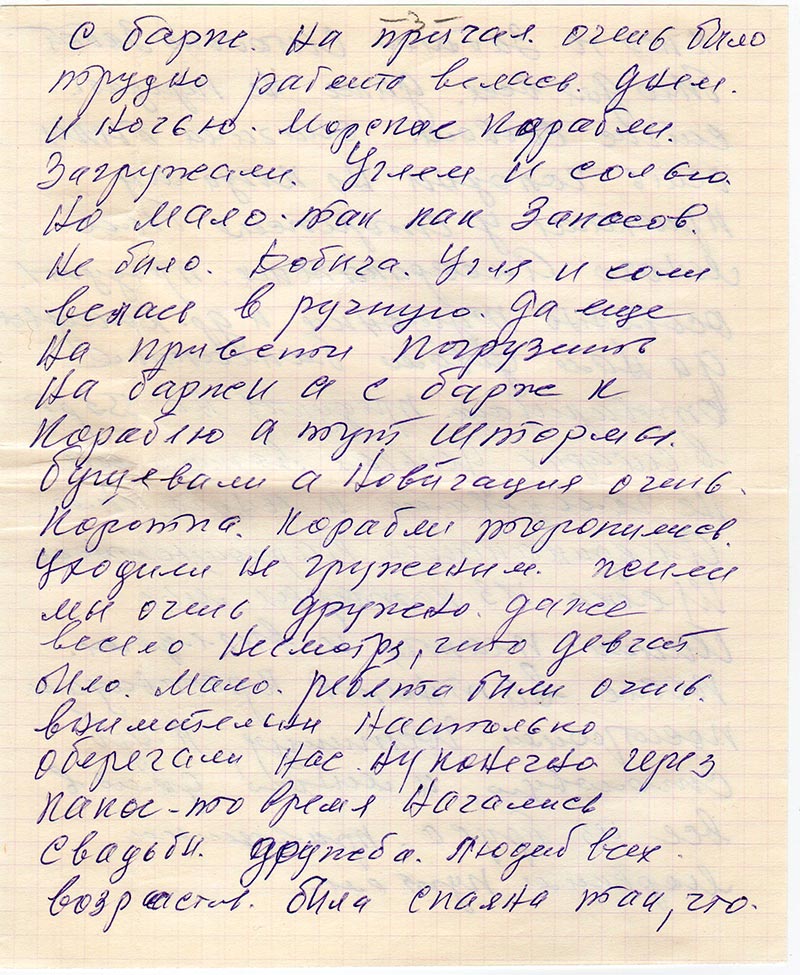 -3-
с барже на причал. очень было
трудно работа велась. днем.
и ночью. Морские корабли.
Загружали. Углем и солью.
Но мало. так как Запасов.
не было. Добыча. Угля и соли
велась в ручную. да еще
на привести погрузить
на баржи а с барж к
кораблю а тут штормы.
бушевали а новигация очень.
коротка. корабли торопились.
уходили не груженым. жили
мы очень дружно. даже
весело несмотря, что девчат.
было. мало. ребята были очень.
внимательны настолько
оберегали нас. ну конечно через
какое-то время начались
свадьбы. дружба. людей всех.
возрастов. была спаяна так, что.